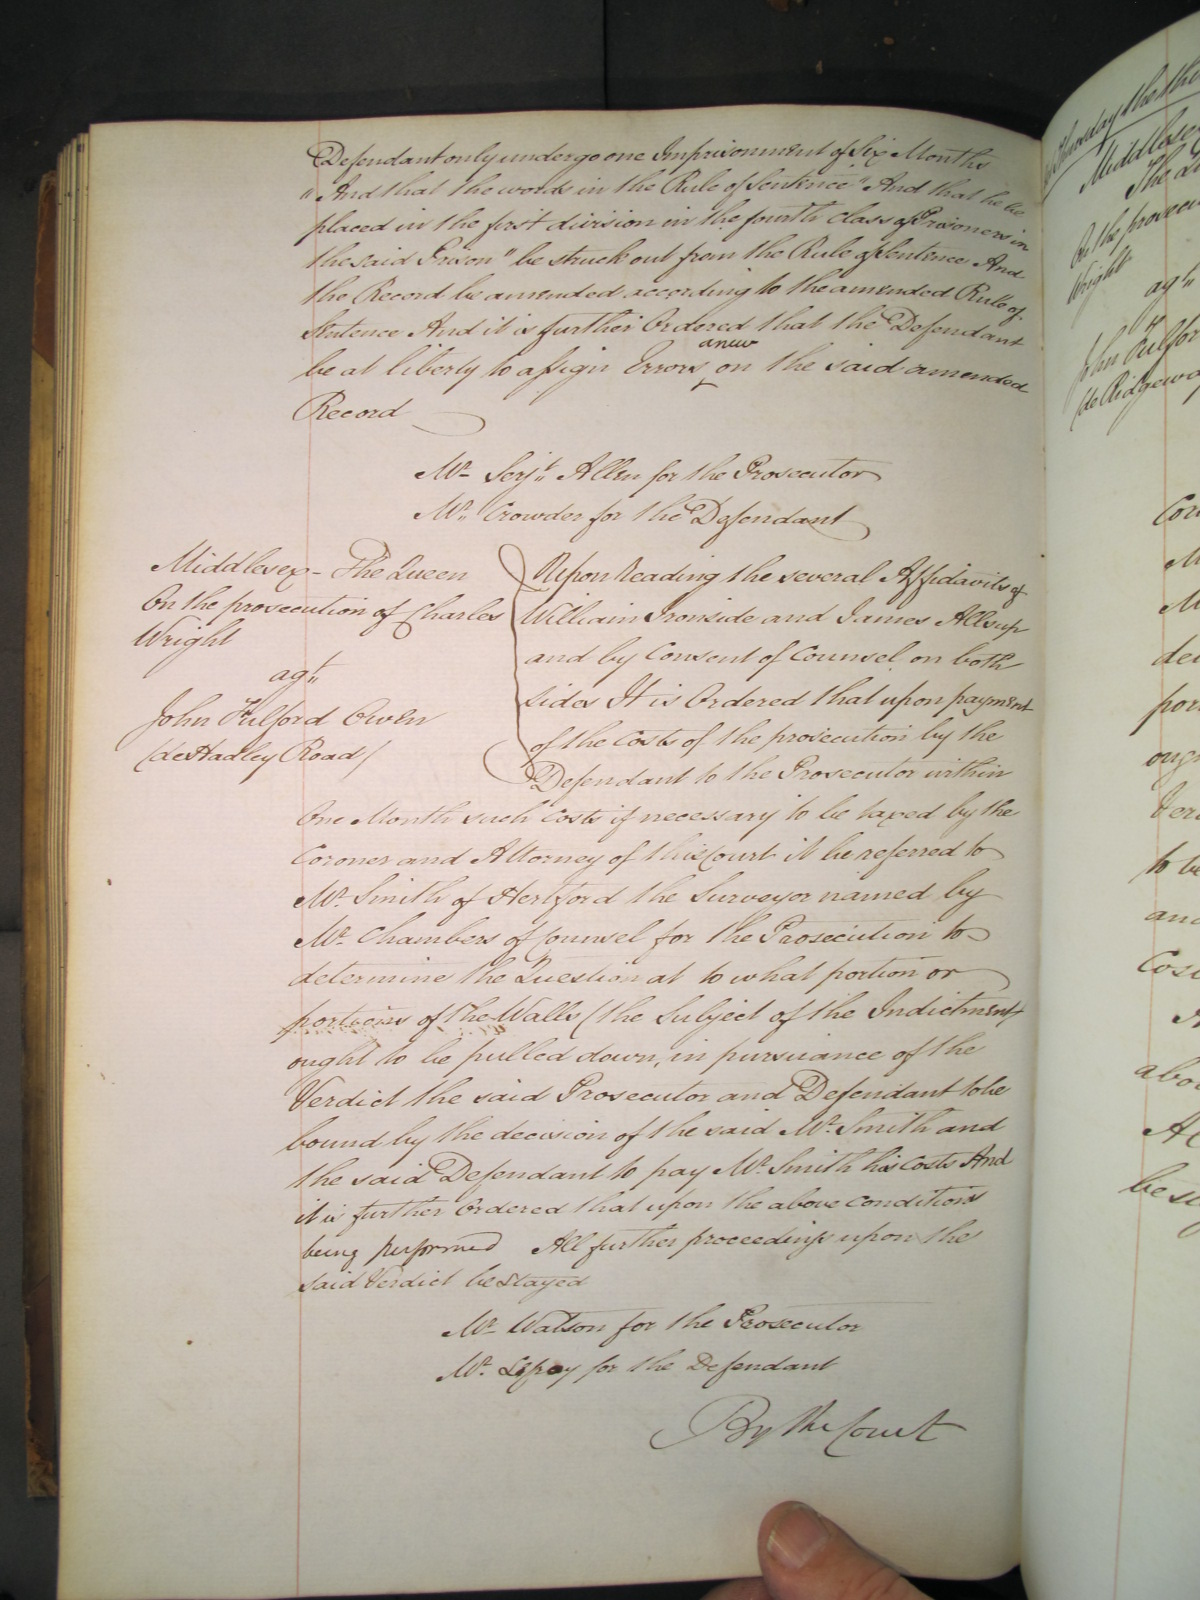 Defendant only undergo one Imprisonment of Six Months
"And that the words in the Rule of Sentence "And that he be
placed in the first division in the fourth class of Prisoners in
the said Prison" be struck out from the Rule of Sentence And
the Record be amended according to the amended Rule of
Sentence And it is further Ordered that the Defendant
be at liberty to assign Errors anew on the said amended
Record
Mr. Serjt. Allen for the Prosecutor
Mr. Crowder for the Defendant
Middlesex - The Queen
On the prosecution of Charles
Wright
agt.
John Fulford Owen
(de Hadley Road)
Upon Reading the several Affidavits of
William Ironside and James Allsup
and by Consent of Counsel on both
sides It is Ordered that upon payment
of the Costs of the prosecution by the
Defendant to the Prosecutor within
One Month such Costs if necessary to be taxed by the
Coroner and Attorney of this Court it be referred to
Mr. Smith of Hertford the Surveyor named by
Mr. Chambers of Counsel for the Prosecution to
determine the Question at to what portion or
portions of the Walls (the Subject of the Indictment
ought to be pulled down, in pursuance of the
Verdict the said Prosecutor and Defendant to be
bound by the decision of the said Mr. Smith and
the said Defendant to pay Mr. Smith his costs And
it is further Ordered that upon the above conditions
being performed All further proceedings upon the
said Verdict be stayed
Mr. Watson for the Prosecutor
Mr. Lefroy for the Defendant
By the Court
Thursday the
Middlesex
The
On the
Wright
agt.
John Fulford
(de Ridgeway
to be
and